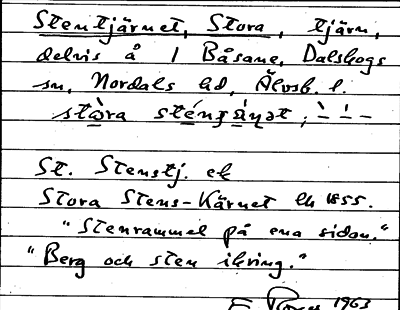 Stentjärnet, Stora, tjärn,
delvis å 1 Båsane, Dalskogs
sn, Nordals hd, Älvsb. l.
St. Stenstj. ek
Stora Stens-Kärnet lm 1855.
"Stenrammel på ena sidan."
"Berg och sten ikring."
1963